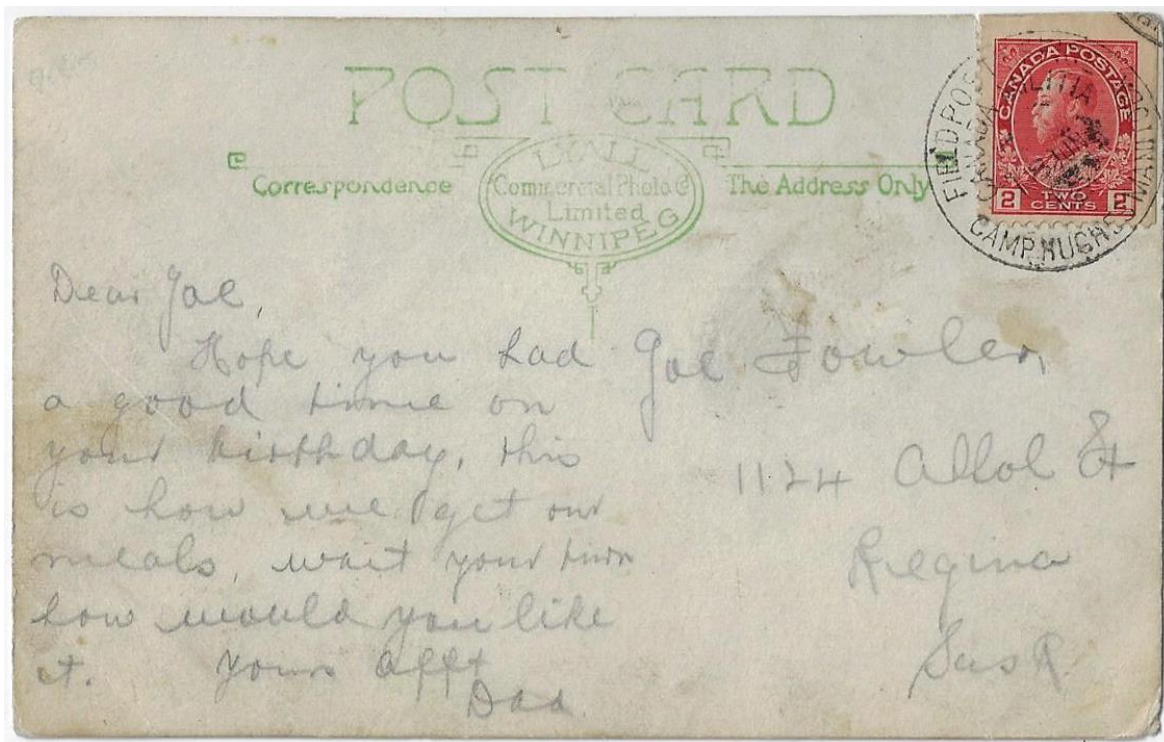 POST CARD
Correspondence
LYALL
Commercial Photo Co
Limited
WINNIPEG
The Address Only
CANADA POSTAGE
2 TWO CENTS 2
FIELD POST
CANADA MILITIA
CAMP HUGHES, MAN
Dear Joe,
Hope you had
a good time on
your birthday, this
is how we get our
meals, wait your turn
how would you like
it. Yours Afft
Dad
Joe Fowler,
1124 St
Regina
Sask